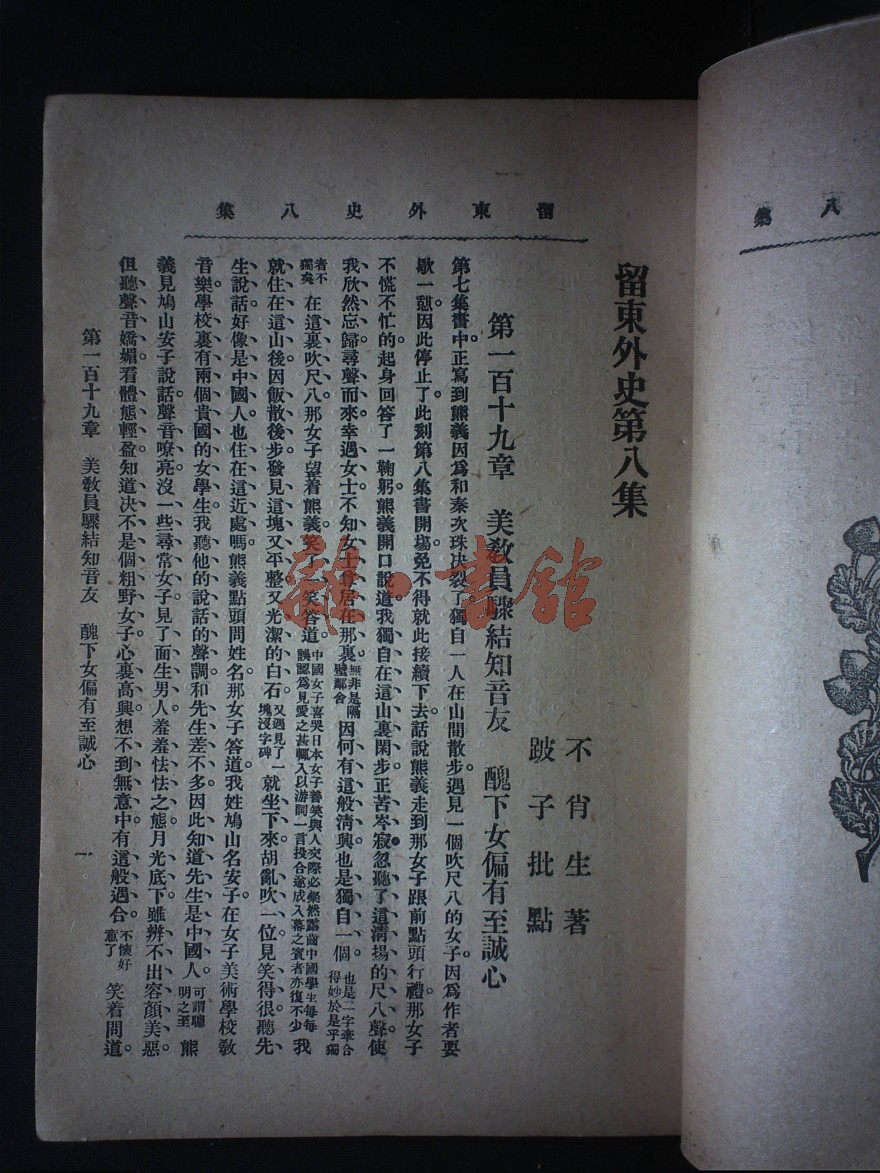 留東外史八集
留東外史第八集
不肖生著
跛子批點
第一百十九章　美教員驟結知音友　醜下女偏有至誠心
第七集書中。正寫到熊義因爲和秦次珠决裂了獨自一人在山間散步。遇見一個吹尺八的女子。因爲作者要
歇一憩因此停止了。此刻第八集書開場。免不得就此接續下去。話說熊義走到那女子跟前點頭行禮。那女子
不慌不忙的起身回答了一鞠躬。熊義開口說道。我獨自在這山裏閑步。正苦岑寂。忽聽了這淸揚的尺八聲。使
我欣然忘歸。尋聲而來。幸遇女士。不知女士住居在那裏。無非是隔壁鄰舍因何有這般淸興。也是獨自一個也是二字牽合得妙於是乎獨
者不獨矣在這裏吹尺八。那女子望着熊義笑了一笑答道。中國女子喜哭日本女子善笑與人交際必粲然露齒中國學生每每誤認爲見愛之甚輒入以游詞一言投合遂成入幕之賓者亦復不少我
就住在這山後。因飯散後步。發見這塊又平整又光潔的白石。又遇見了一塊沒字碑就坐下來胡亂吹一位。見笑得很。聽先
生說話好像是中國人。也住在這近處嗎。熊義點頭問姓名。那女子答道。我姓鳩山名安子。在女子美術學校敎
音樂。學校裏有兩個貴國的女學生。我聽他的說話的聲調和先生差不多。因此知道先生是中國人。可謂聰明之至熊
義見鳩山安子說話聲音嘹亮。沒一些尋常女子見了面生男人羞羞怯怯之態。月光底下。雖辨不出容顏美惡。
但聽聲音嬌媚。看體態輕盈。知道决不是個粗野女子。心裏高興。想不到無意中有這般遇合。不懷好意了笑着問道。
第一百十九章　美敎員驟結知音友　醜下女偏有至誠心
一
八集
雜·書館